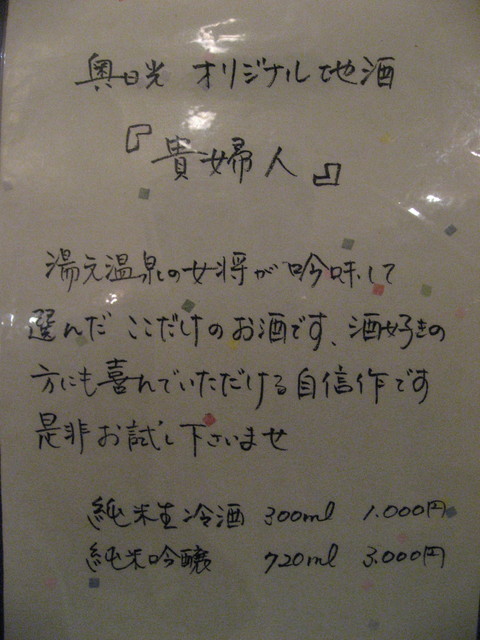 奥日光 オリジナル地酒
『貴婦人』
湯元温泉の女将が吟味して
選んだ ここだけのお酒です、酒好きの
方にも喜んでいただける自信作です
是非お試し下さいませ
純米生冷酒 300ml 1.000円
純米吟醸 720ml 3.000円